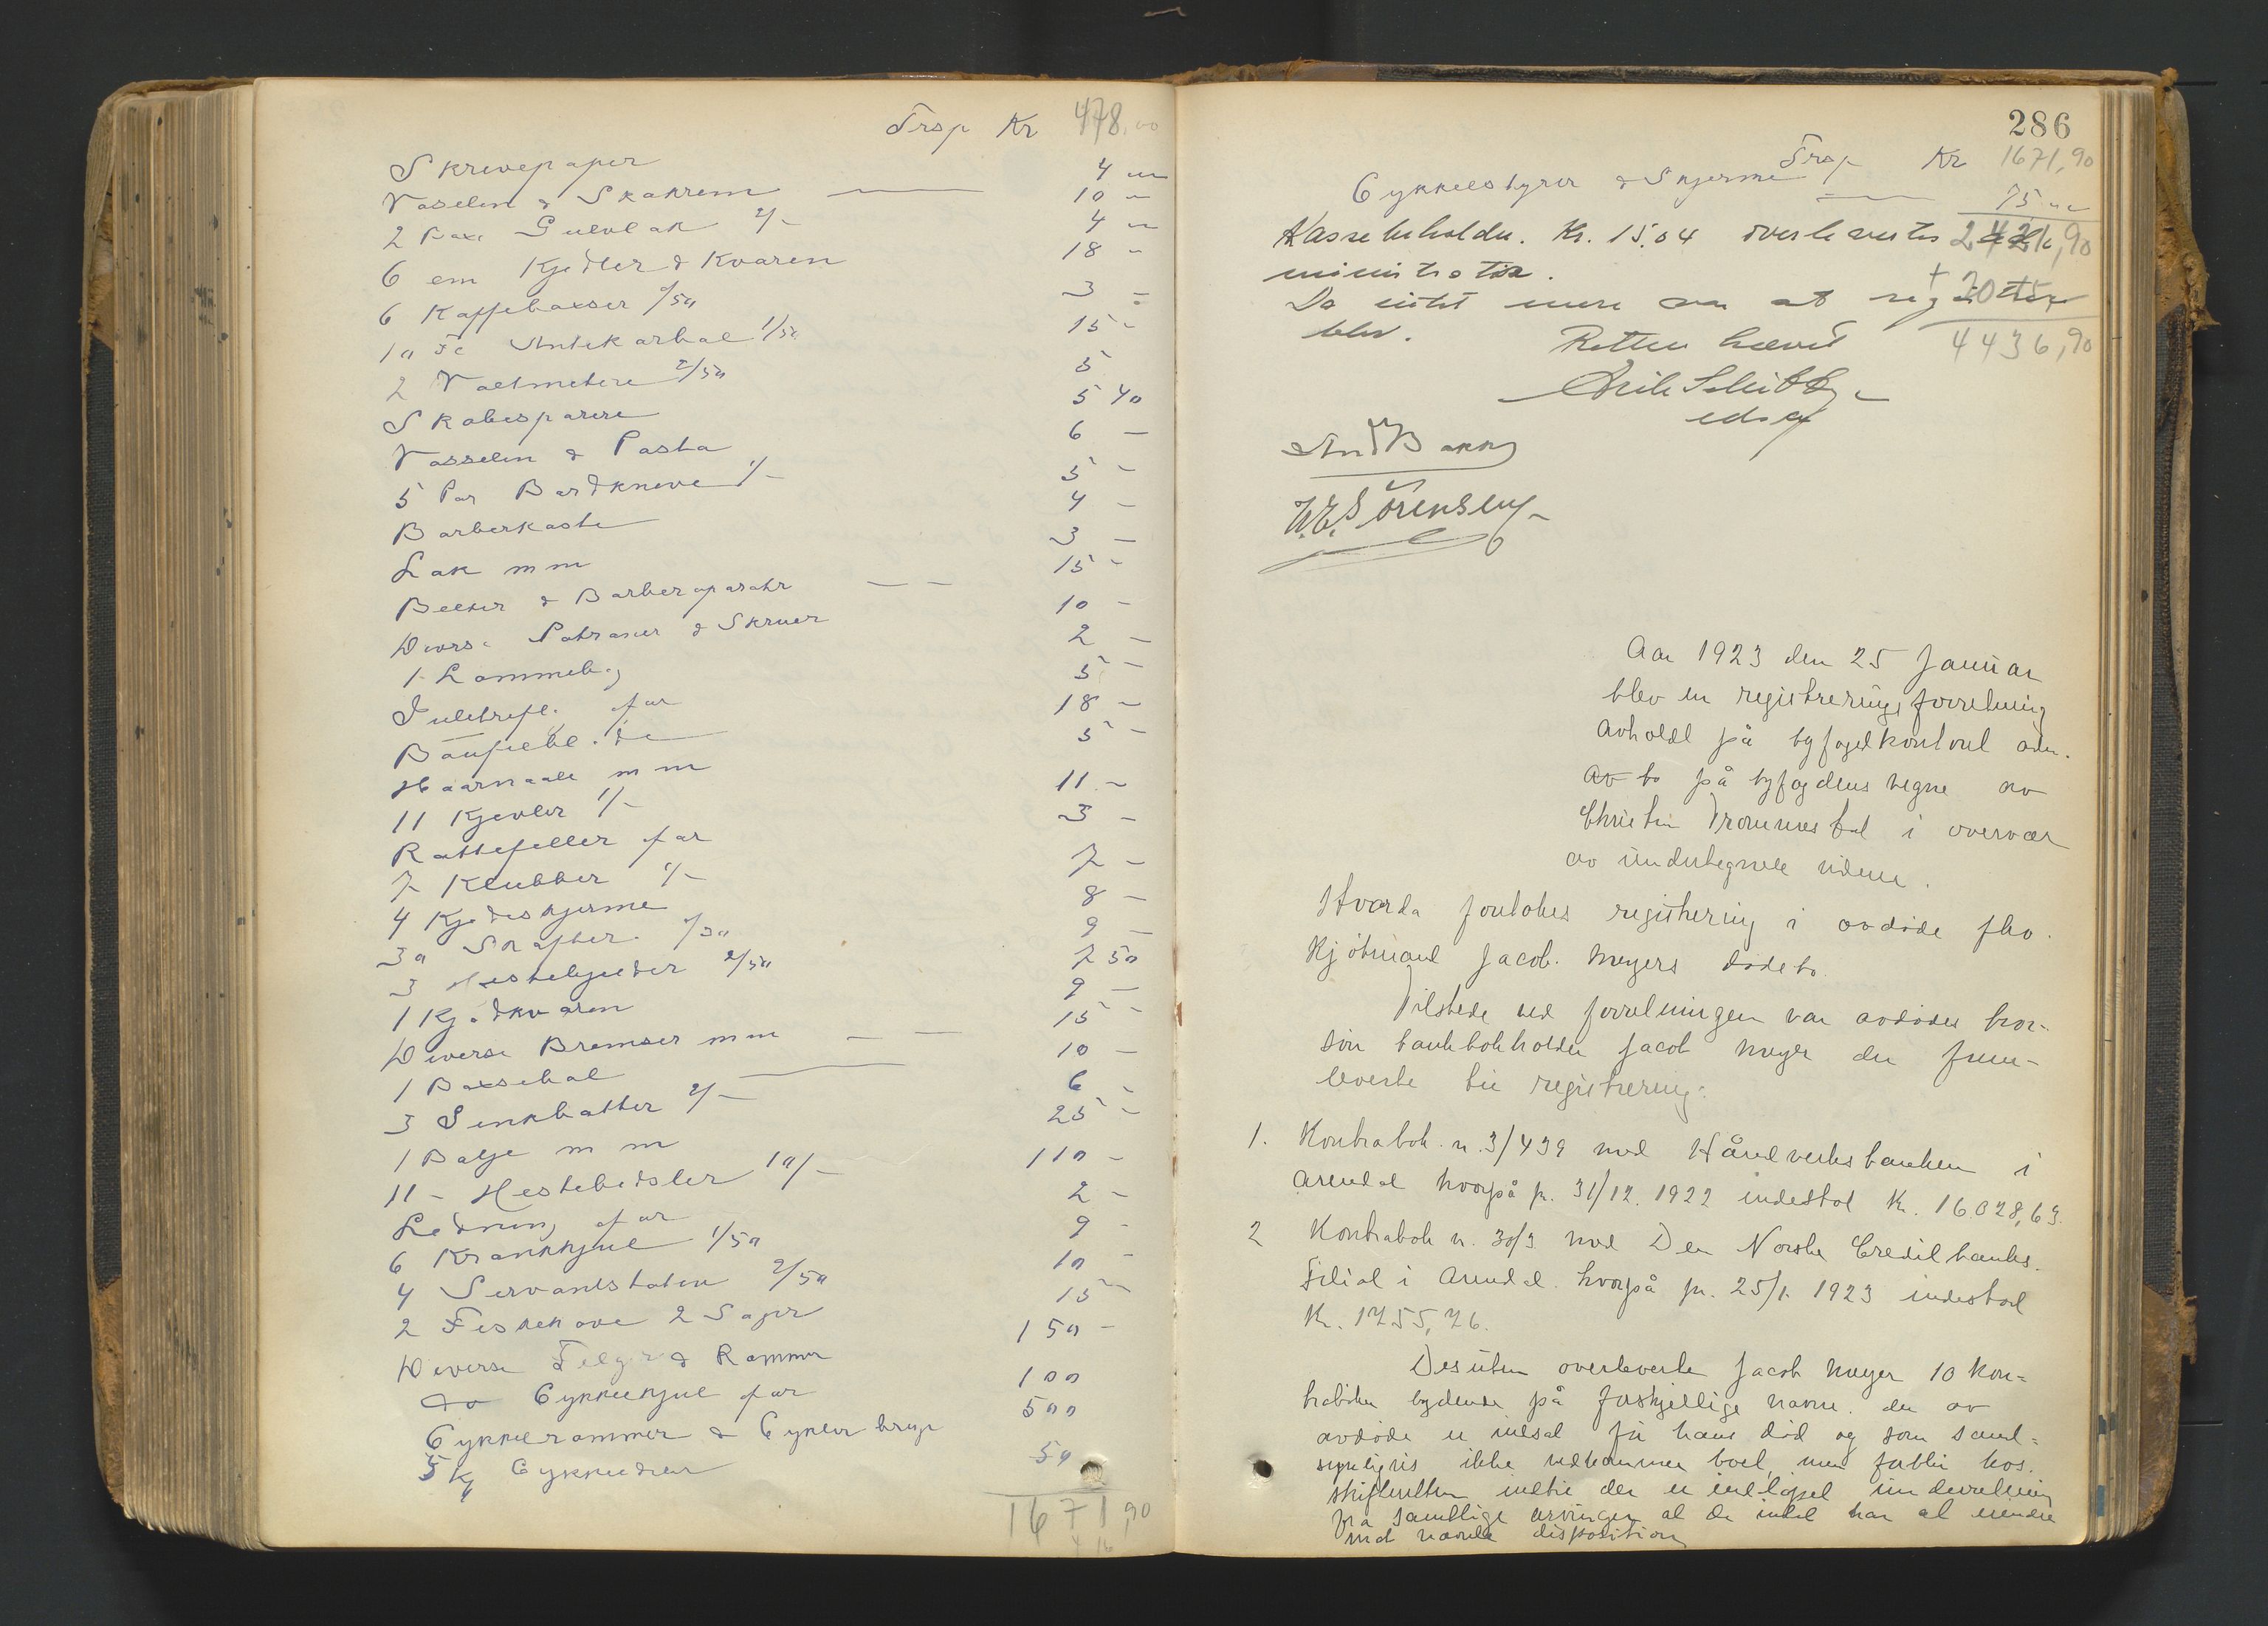 Trsp Kr 478,00
Skrivepapir 4 "
Vaselin & Skokrem 10 -
2 Boxe Gulvlak 2/- 4 "
6 em Kjedler & Kvaren 18 -
6 Kaffebaxser /50 3 -
10 Fl Antikarbol 1/50 15 -
2 Voltmetere 2/50 5
Skobesparere 5 40
Vasselin & Pasta 6 -
5 Par Bardkneve 1/- 5 -
Barberkoste 4 -
Lak m m 3 -
Belter & Barberaparater 15 -
Divers. Patroner & Skruer 10 -
1 Lommel. 2 -
Juletrefl. for 5 -
18 -
Haarnaale m m 5 -
11 Kjevler 1/- 11 -
Rottefeller for 3 -
7 Klubber 1/- 7 -
4 Kjedeskjerme 8 -
30 Skafter /30 9 -
3 Hestehjeder 2/50 7 50
1 Kjødkvaren 9 -
Diverse Bremser m m 15 -
1 Baxebal 10 -
3 Sinkbatter 2/- 6 -
1 Balje m m 25 -
11 - Hestebidsler 10/- 110 -
Ledning for 2 -
6 Krankhjul 1/50 9 -
4 Servantstativ 2/50 10 -
2 Fiskehove 2 Sager 15 -
Diverse Felger & Rammer 150 -
do Cykkelhjul for 100
Cykkelrammer & Cykler brugt 500
5 Kg Cykkeldeler 50
1671,90
286
Trsp Kr 1671,90
Cykkelstyrer & Skjerme 75 "
Kassebeholdn. Kr. 15.04 overleveres 2421,90
ministrator.
Da intet mere var at reg
blev. 4436,90
Retten hævet
And Bakke
H.E. Sørensen
Aar 1923 den 25 Januar
blev en registreringsforretning
avholdt på byfogedkontoret adm.
av to på byfogdens vegne av
Christen Trommestad i overvær
av undertegnede vidner.
Hvorda foretokes registrering i avdøde fhv.
Kjøbmand Jacob Meyers dødsbo.
Tilstede ved forretningen var avdødes bror-
søn bankbokholder Jacob Meyer der frem-
leverte til registrering:
1. Kontrabok n. 3/439 med Håndverksbanken i
Arendal hvorpå pr. 31/12. 1922 indestod Kr. 16.028,63.
2 Kontrabok n. 30/3 med Den Norske Creditbanks.
Filial i Arendal hvorpå pr. 25/1. 1923 indestod
Kr. 1755,76.
Desuten overleverte Jacob Meyer 10 kon-
trabøker lydende på forskjellige navne. der av
avdøde er indsat før hans død og som sand-
synligvis ikke vedkommer boet, men forblir hos
skifteretten indtil der er indløpet underretning
fra samtlige arvinger at de intet har at erindre
mot nævnte disposition